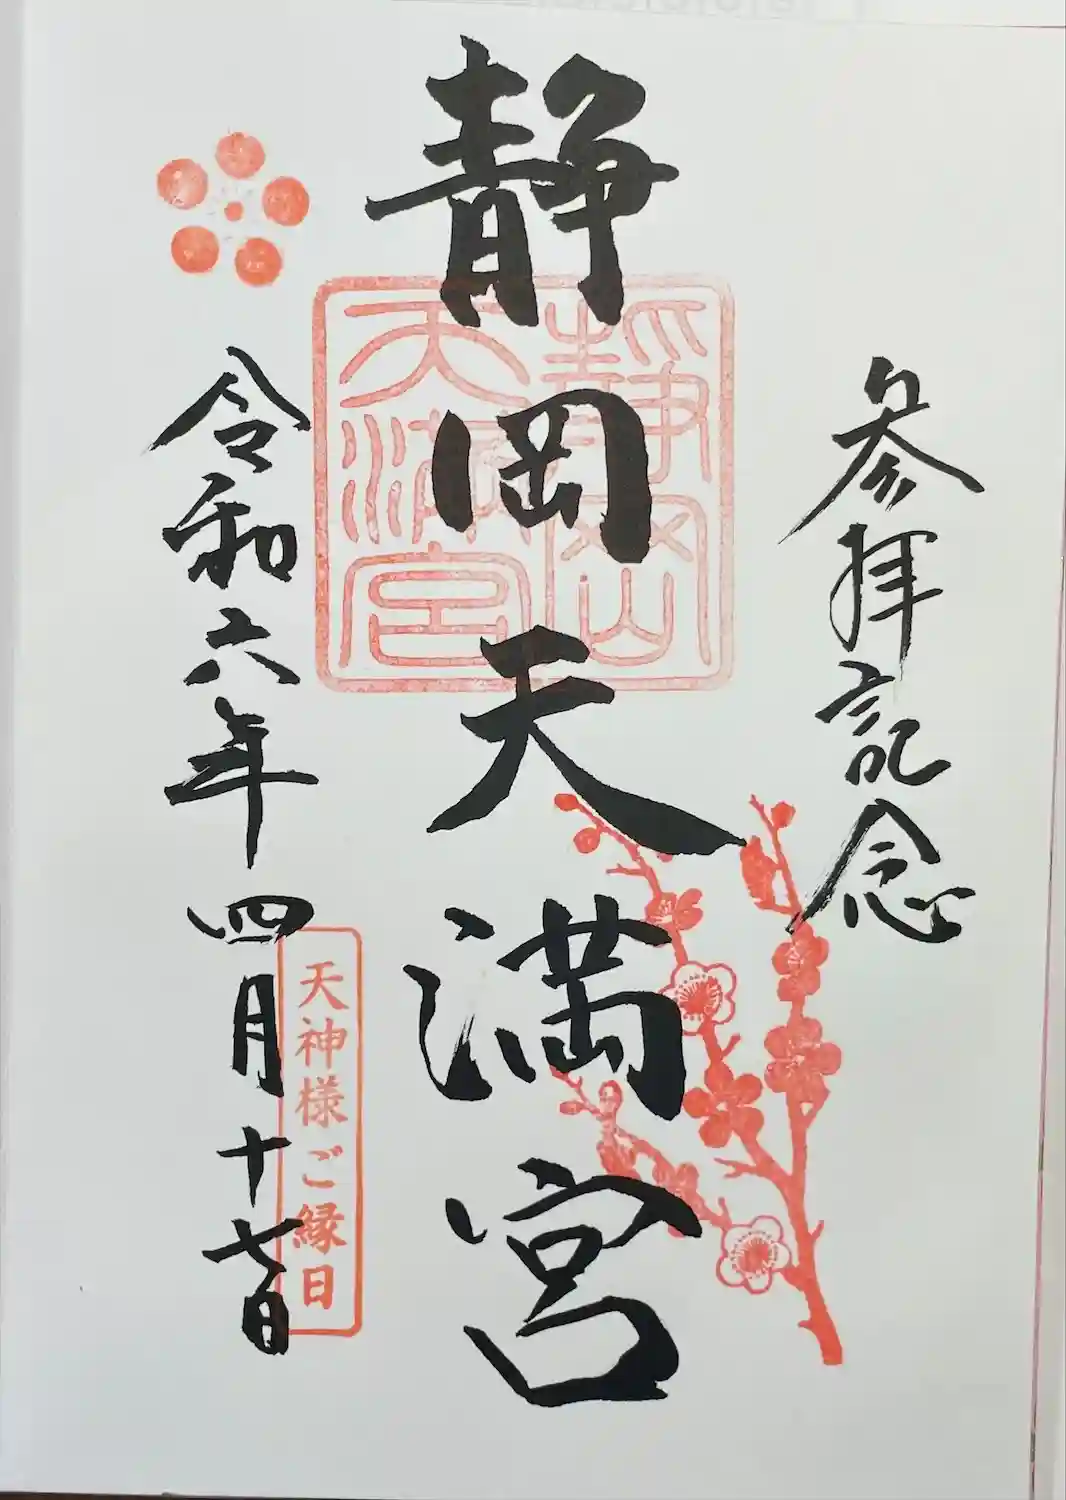 参拝記念
静岡天満宮
静岡
天満宮
天神様ご縁日
令和六年四月十七日